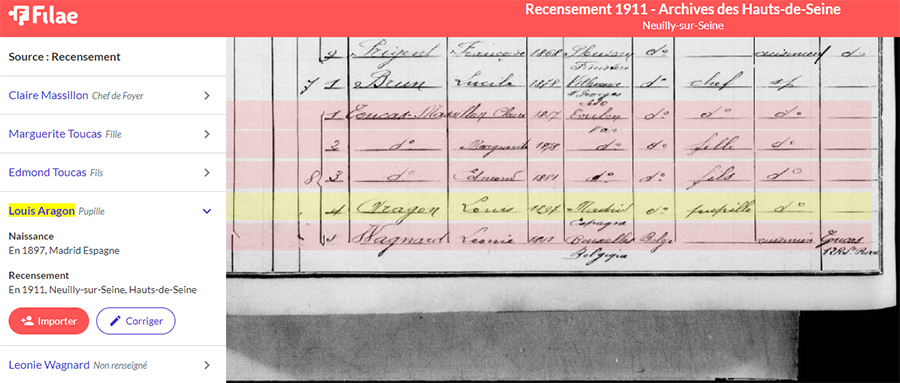 Filae
Recensement 1911 - Archives des Hauts-de-Seine
Neuilly-sur-Seine
Source : Recensement
Claire Massillon Chef de Foyer
Marguerite Toucas Fille
Edmond Toucas Fils
Louis Aragon Pupille
Naissance
En 1897, Madrid Espagne
Recensement
En 1911, Neuilly-sur-Seine, Hauts-de-Seine
Importer Corriger
Leonie Wagnard Non renseigné
2 François 1868 do
7 1 Brun Lucile 1878 Villeneuve do chef sp
St Georges
1 Toucas Massillon Claire 1857 Toulon do do do
Var
2 do Marguerite do do fille do
8 3 do Edmond 1881 do do fils do
4 Aragon Louis 1897 Madrid do pupille do
Espagne
5 Wagnard Leonie Bruxelles Belge cuisinière Toucas
Belgique